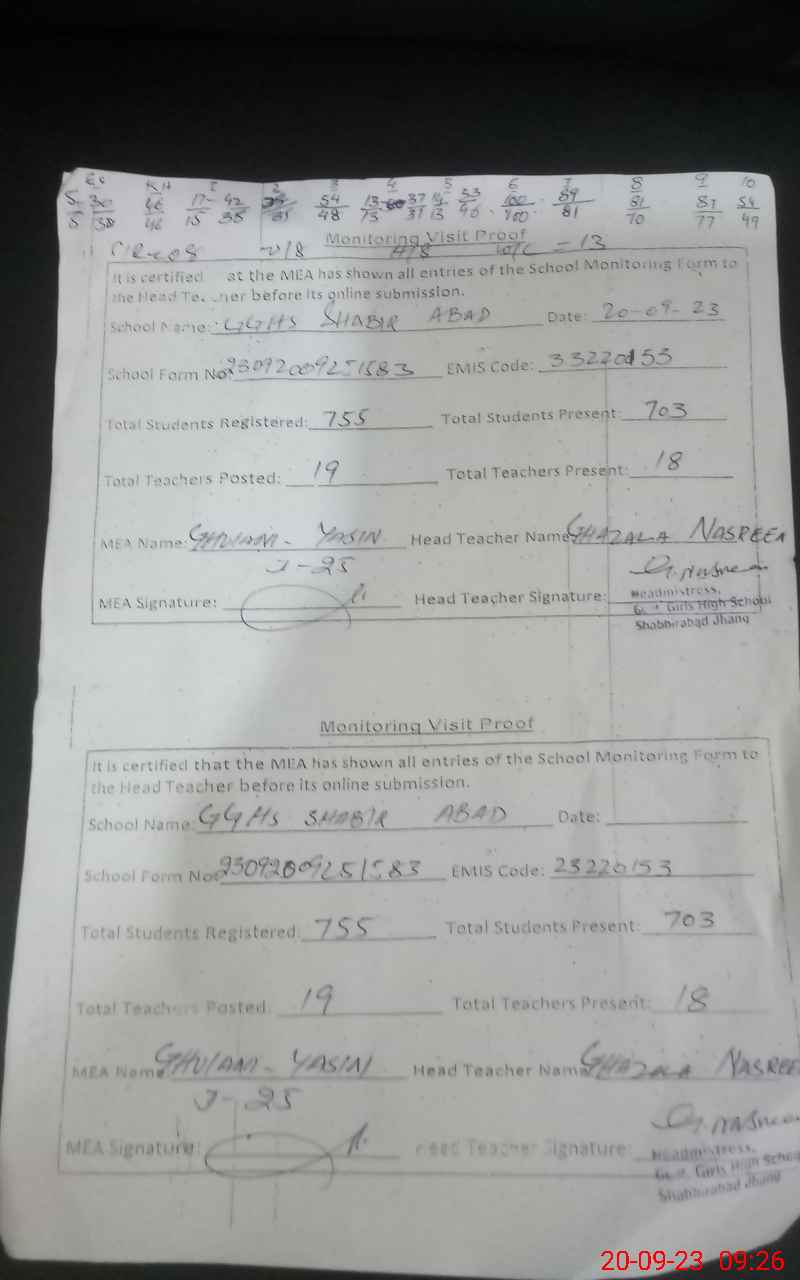 KH 2 3 4 5 6 7 8 9 10
30 46 17 42 54 13 37 33 100 89 81 87 54
46 15 35 48 13 31 13 46 100 81 70 77 49
Monitoring Visit Proof
= 13
It is certified at the MEA has shown all entries of the School Monitoring Form to
the Head Te cher before its online submission.
School Name: GGHS SHABIR ABAD Date: 20-09-23
School Form No: 2309200925 1583 EMIS Code: 33220153
Total Students Registered: 755 Total Students Present: 703
Total Teachers Posted: 19 Total Teachers Present: 18
MEA Name: GHULAM- YASIN Head Teacher Name GHAZALA NASREEN
J-25 G. Nasreen
MEA Signature: Head Teacher Signature: Headmistress,
Girls High School
Shabbirabad Jhang
Monitoring Visit Proof
It is certified that the MEA has shown all entries of the School Monitoring Form to
the Head Teacher before its online submission.
School Name: GGHS SHABIR ABAD Date:
School Form No: 23092009251583 EMIS Code: 23220153
Total Students Registered: 755 Total Students Present: 703
Total Teachers Posted: 19 Total Teachers Present: 18
MEA Name GHULAM- YASIN Head Teacher Name GHAZALA NASREE
J-25 G. Nasreen
MEA Signature: Head Teacher Signature: Headmistress,
Girls High Schoo
Shabbirabad Jhang
20-09-23 09:26